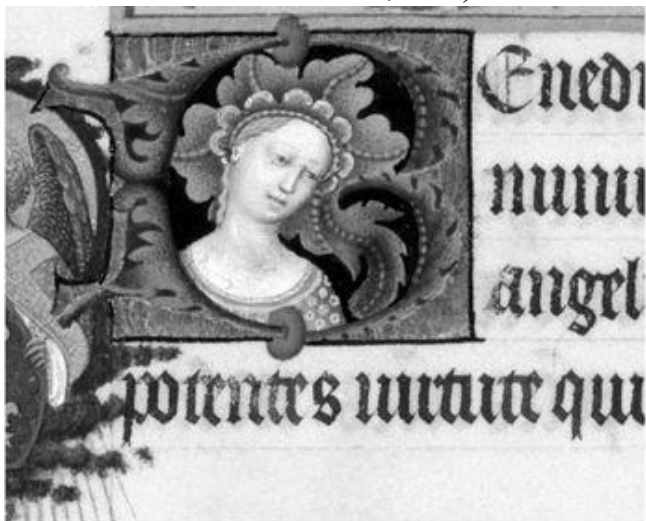 BEnedi
minu
angel
potentes uirtute qui